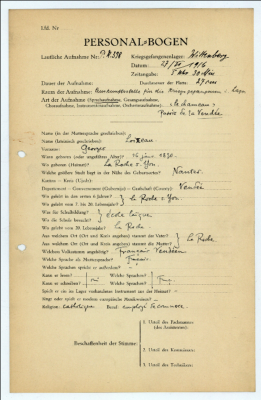 Lfd. Nr
PERSONAL-BOGEN
Lautliche Aufnahme Nr.: P.K. 338 Kriegsgefangenenlager: Wittenberg
Datum: 1916
Zeitangabe: 5 Uhr 30 Min
Dauer der Aufnahme: Durchmesser der Platte: 27 cm
Raum der Aufnahme:
Art der Aufnahme (Sprechaufnahme, Gesangsaufnahme,
Choraufnahme, Instrumentenaufnahme, Orchesteraufnahme):
Patois de la Vendée
Name (in der Muttersprache geschrieben):
Name (lateinisch geschrieben): Loizeau
Vorname: Georges
Wann geboren (oder ungefähres Alter)? 1890.
Wo geboren (Heimat)? La Roche s. Yon.
Welche größere Stadt liegt in der Nähe des Geburtsortes? Nantes.
Kanton – Kreis (Ujezd):
Departement – Gouvernement (Gubernija) – Grafschaft (County): Vendée
Wo gelebt in den ersten 6 Jahren?
Wo gelebt vom 7. bis 20. Lebensjahr? La Roche s. Yon.
Was für Schulbildung?
Wo die Schule besucht? école laïque
Wo gelebt vom 20. Lebensjahr? La Roche.
Aus welchem Ort (Ort und Kreis angeben) stammt der Vater?
Aus welchem Ort (Ort und Kreis angeben) stammt die Mutter? La Roche
Welchem Volksstamm angehörig? Français Vendéen
Welche Sprache als Muttersprache? Franç.
Welche Sprachen spricht er außerdem?
Kann er lesen? Welche Sprachen?
Kann er schreiben? Welche Sprachen? Frç.
Spielt er ein im Lager vorhandenes Instrument aus der Heimat?
Singt oder spielt er moderne europäische Musikweisen?
Religion: catholique Beruf: employé de commerce
Beschaffenheit der Stimme:
1. Urteil des Fachmannes
(des Assistenten):
2. Urteil des Kommissars:
3. Urteil des Technikers: